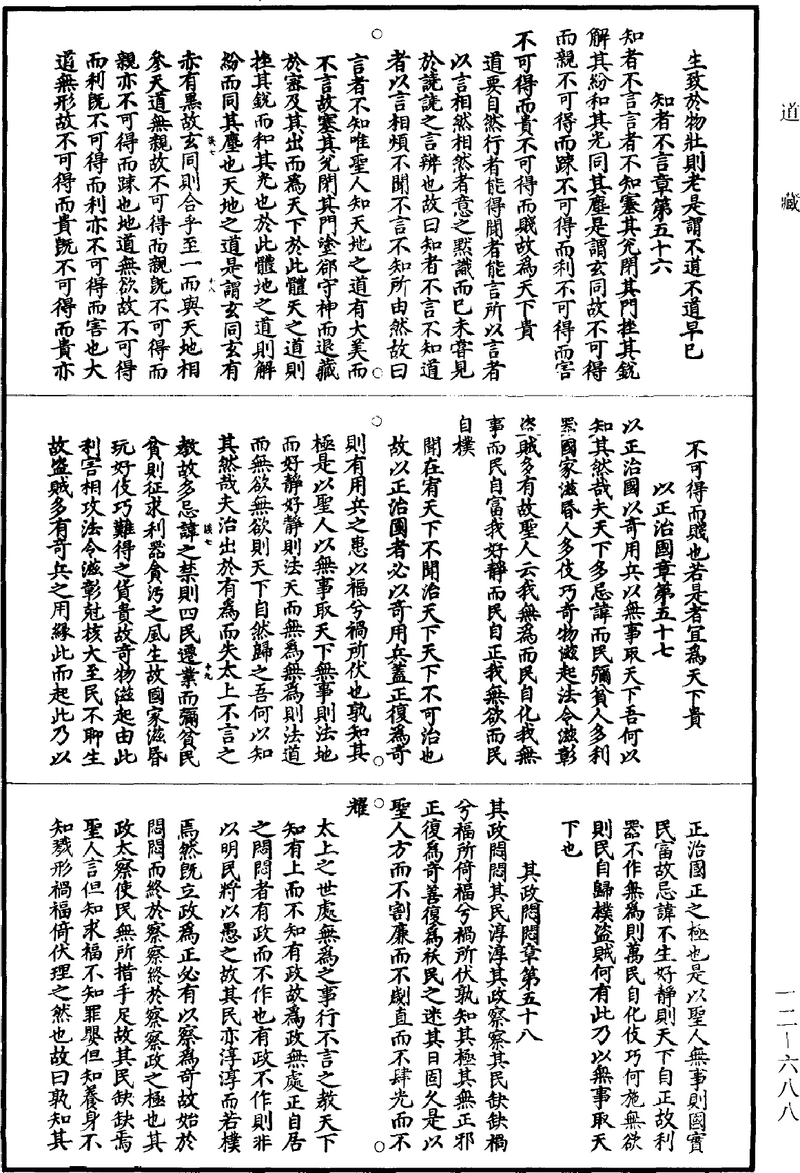 道藏
生致於物壯則老是謂不道不道早已
知者不言章第五十六
知者不言言者不知塞其兊閉其門挫其銳
解其紛和其光同其塵是謂玄同故不可得
而親不可得而踈不可得而利不可得而害
不可得而貴不可得而賤故為天下貴
道要自然行者能得聞者能言所以言者
以言相然相然者意之默識而已未甞見
於譊譊之言辨也故曰知者不言不知道
者以言相煩不聞不言不知所由然故曰
言者不知唯聖人知天地之道有大美而
不言故塞其兊閉其門塗郤守神而退藏
於密及其出而為天下於此體天之道則
挫其銳而和其光也於此體地之道則解
紛而同其塵也天地之道是謂玄同玄有
談七
亦有黑故玄同則合乎至一而與天地相
十八
參天道無親故不可得而親旣不可得而
親亦不可得而踈也地道無欲故不可得
而利旣不可得而利亦不可得而害也大
道無形故不可得而貴旣不可得而貴亦
不可得而賤也若是者宜為天下貴
以正治國章第五十七
以正治國以奇用兵以無事取天下吾何以
知其然哉夫天下多忌諱而民彌貧人多利
器國家滋昏人多伎巧奇物滋起法令滋彰
盜賊多有故聖人云我無為而民自化我無
事而民自富我好靜而民自正我無欲而民
自樸
聞在宥天下不聞治天下天下不可治也
故以正治國者必以奇用兵蓋正復為奇
則有用兵之患以福兮禍所伏也孰知其
極是以聖人以無事取天下無事則法地
而好靜好靜則法天而無為無為則法道
而無欲無欲則天下自然歸之吾何以知
其然哉夫治出於有為而失太上不言之
談七
教故多忌諱之禁則四民遷業而彌貧民
十九
貧則征求利器貪汚之風生故國家滋昏
玩好伎巧難得之貨貴故奇物滋起由此
利害相攻法令滋彰尅核大至民不聊生
故盜賊多有奇兵之用緣此而起此乃以
正治國正之極也是以聖人無事則國實
民富故忌諱不生好靜則天下自正故利
器不作無為則萬民自化伎巧何施無欲
則民自歸樸盜賊何有此乃以無事取天
下也
其政悶悶章第五十八
其政悶悶其民淳淳其政察察其民缺缺禍
兮福所倚福兮禍所伏孰知其極其無正邪
正復為奇善復為祅民之迷其日固久是以
聖人方而不割廉而不劌直而不肆光而不
耀
太上之世處無為之事行不言之教天下
知有上而不知有政故為政無處正自居
之悶悶者有政而不作也有政不作則非
以明民將以愚之故其民亦淳淳而若樸
焉然旣立政為正必有以察為奇故始於
悶悶而終於察察終於察察政之極也其
政太察使民無所措手足故其民缺缺焉
聖人言但知求福不知罪嬰但知養身不
知戮形禍福倚伏理之然也故曰孰知其
一二—六八八